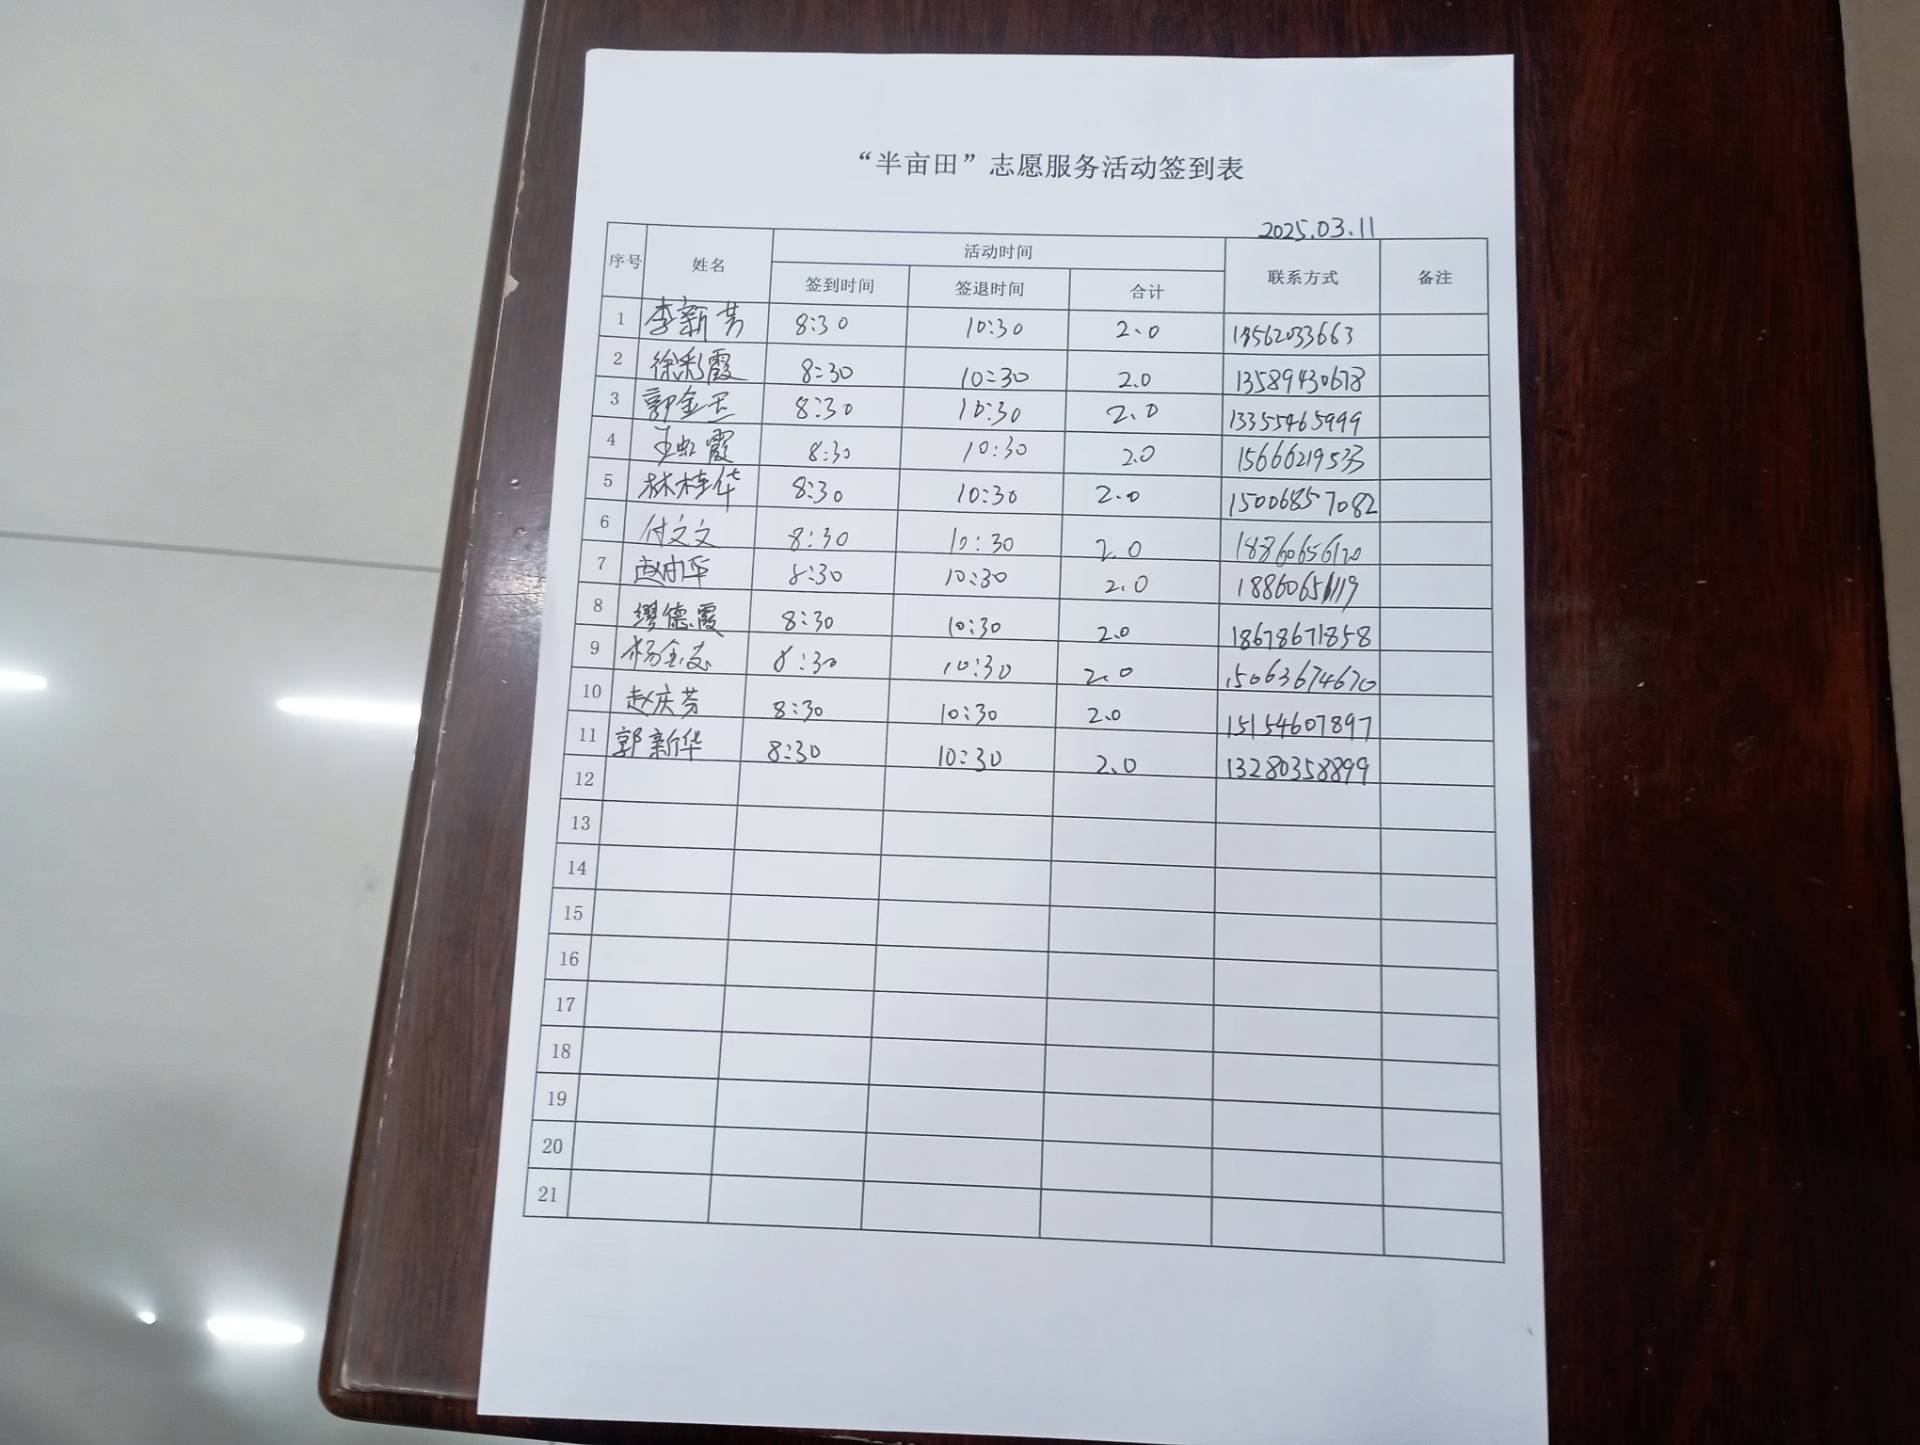 “半亩田”志愿服务活动签到表
2025.03.11
序号 姓名 活动时间 联系方式 备注
签到时间 签退时间 合计
1 李新芳 8:30 10:30 2.0
2 徐彩霞 8:30 10:30 2.0 13589430678
3 郭金 8:30 10:30 2.0 13355465999
4 王虹霞 8:30 10:30 2.0 15666219533
5 林桂华 8:30 10:30 2.0 15006857082
6 付文文 8:30 10:30 2.0
7 8:30 10:30 2.0
8 缪德霞 8:30 10:30 2.0 18678671858
9 杨 8:30 10:30 2.0 15063674670
10 赵庆芳 8:30 10:30 2.0 15154607897
11 郭新华 8:30 10:30 2.0 13280358899
12
13
14
15
16
17
18
19
20
21